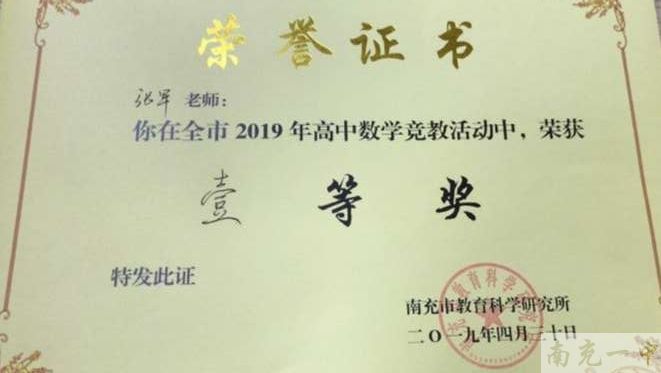 荣誉证书
张军 老师：
你在全市 2019 年高中数学竞教活动中，荣获
壹等奖
特发此证
南充市教育科学研究所
二〇一九年四月三十日
南充一中